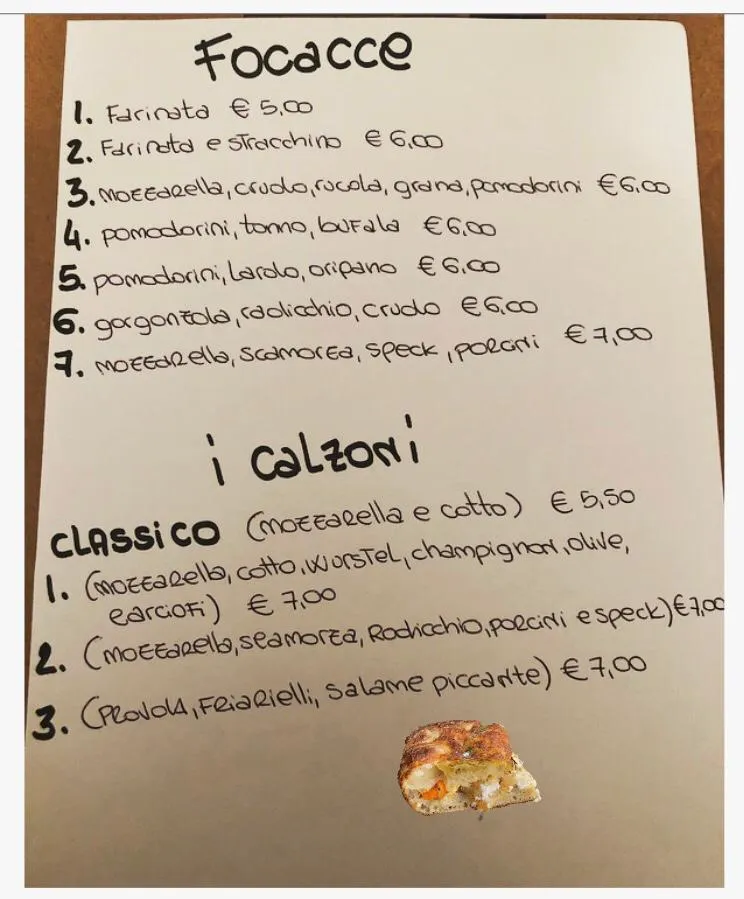 Focacce
1. Farinata € 5,00
2. Farinata e stracchino € 6,00
3. mozzarella, crudo, rucola, grana, pomodorini € 6,00
4. pomodorini, tonno, bufala € 6,00
5. pomodorini, lardo, origano € 6,00
6. gorgonzola, radicchio, crudo € 6,00
7. mozzarella, scamorza, speck, porcini € 7,00
i calzoni
CLASSICO (mozzarella e cotto) € 5,50
1. (mozzarella, cotto, wurstel, champignon, olive,
carciofi) € 7,00
2. (mozzarella, scamorza, Radicchio, porcini e speck) € 7,00
3. (PROVOLA, FRIARIELLI, salame piccante) € 7,00